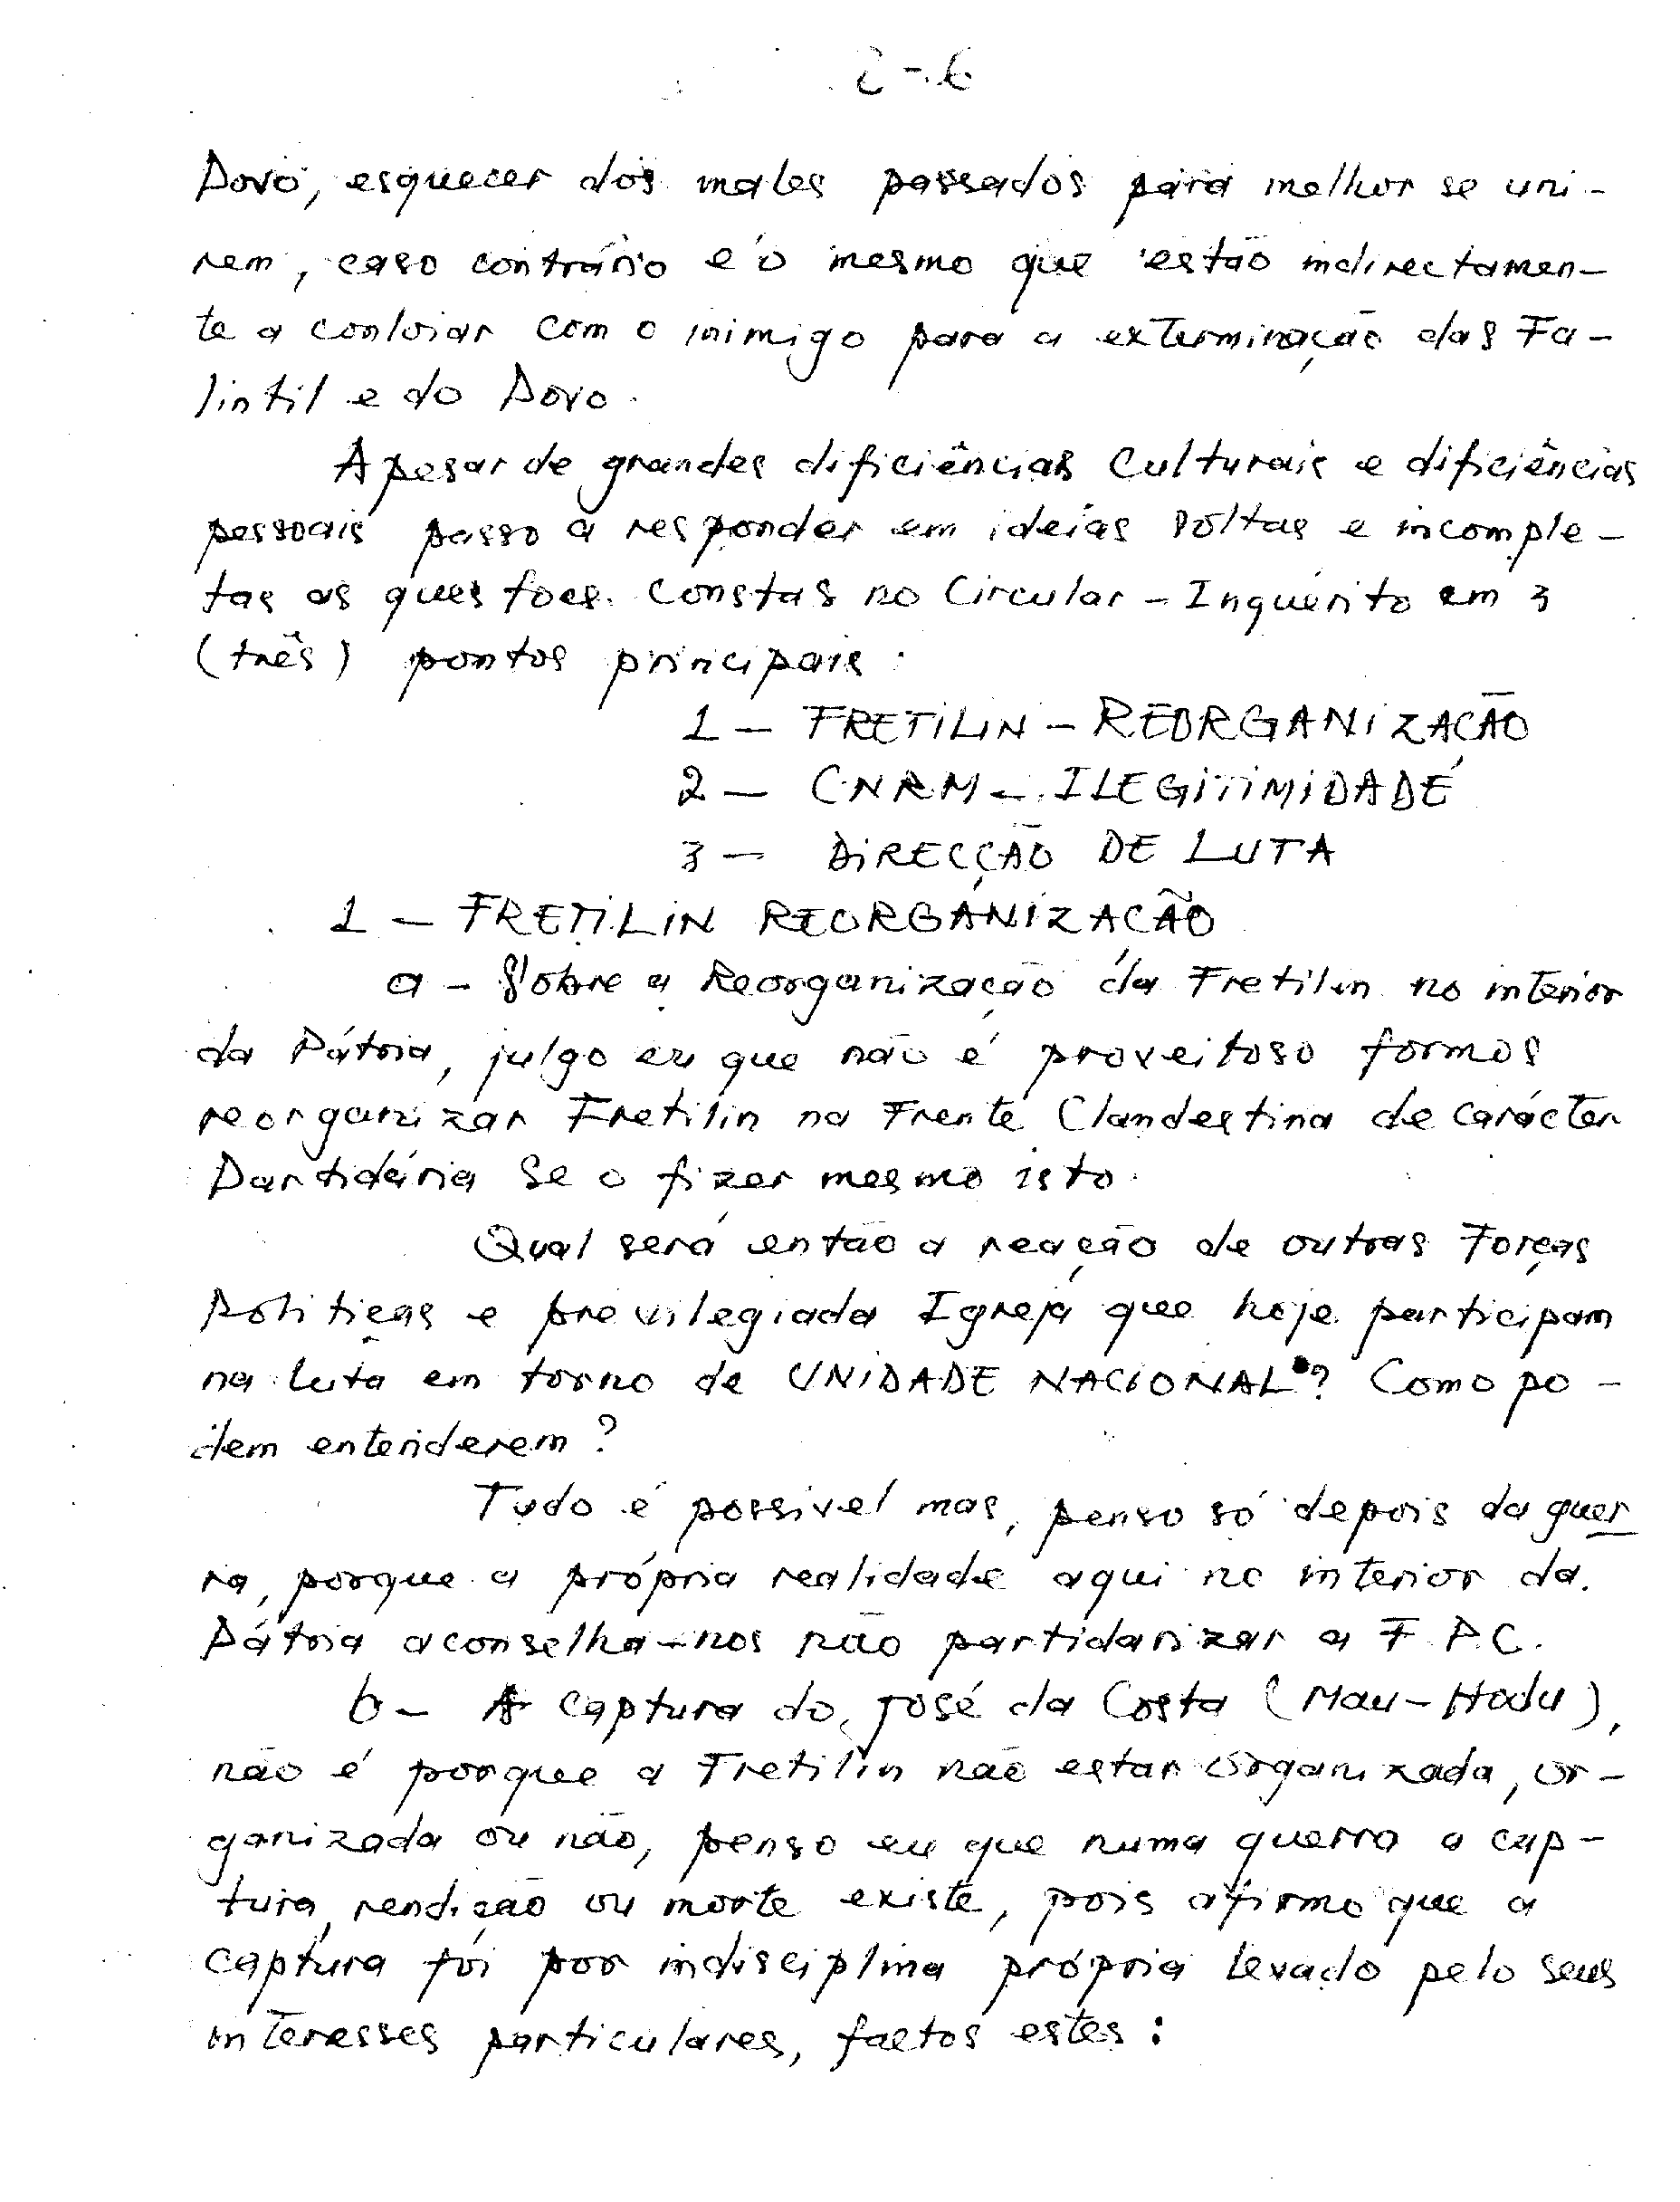 2-6
Povo, esquecer dos males passados para melhor se uni-
rem, caso contrário é o mesmo que estão indirectamen-
te a conloiar com o inimigo para a exterminação das Fa-
lintil e do Povo.
Apesar de grandes dificiências Culturais e dificiências
pessoais passo a responder em ideias soltas e incomple-
tas as questões. Constas no Circular-Inquérito em 3
(três) pontos principais:
1 - FRETILIN - REORGANIZAÇÃO
2 - CNRM - ILEGITIMIDADE
3 - DIRECÇÃO DE LUTA
1 - FRETILIN REORGANIZAÇÃO
a - Sobre a Reorganização da Fretilin no interior
da Pátria, julgo eu que não é proveitoso formos
reorganizar Fretilin na Frente Clandestina de carácter
Partidária se o fizer mesmo isto.
Qual será então a reação de outras Forças
Politiças e previlegiada Igreja que hoje participam
na luta em torno de UNIDADE NACIONAL? Como po-
dem entenderem?
Tudo é possível mas, penso só depois da guer
ra, porque a própria realidade aqui no interior da
Pátria aconselha-nos não partidarizar a F.P.C.
b - A captura do José da Costa (Mau-Hodu),
não é porque a Fretilin não estar organizada, or-
ganizada ou não, penso eu que numa guerra a cap-
tura, rendição ou morte existe, pois afirmo que a
captura foi por indisciplina própria levado pelo seus
interesses particulares, factos estes: